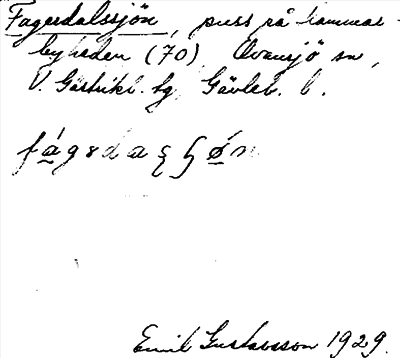 Fagerdalssjön, puss på hammar-
byheden (70) Ovansjö sn,
V. Gästrikl. hg Gävleb. l.
Emil Gustavsson 1929.